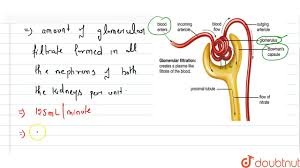 =) amount of glomerular
filtrate formed in all
the nephrons of both
the kidneys per unit.
=) 125mL / minute
=)
blood
enters
incoming
arteriole
blood
flow
outgoing
arteriole
glomerulus
Bowman's
capsule
Glomerular filtration:
creates a plasma like
filtrate of the blood.
proximal tubule
flow of
filtrate
doubtnut